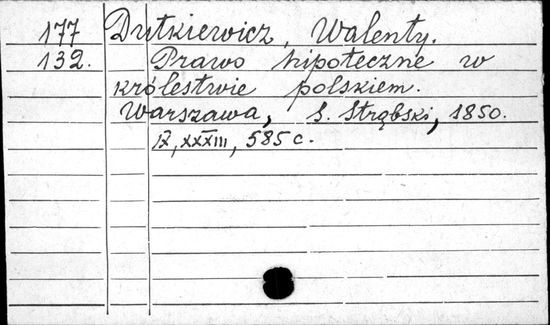 177 Dutkiewicz, Walenty.
132. Prawo hipoteczne w
królestwie polskiem.
Warszawa, S. Strąbski, 1850.
IX, XXXIII, 585 c.